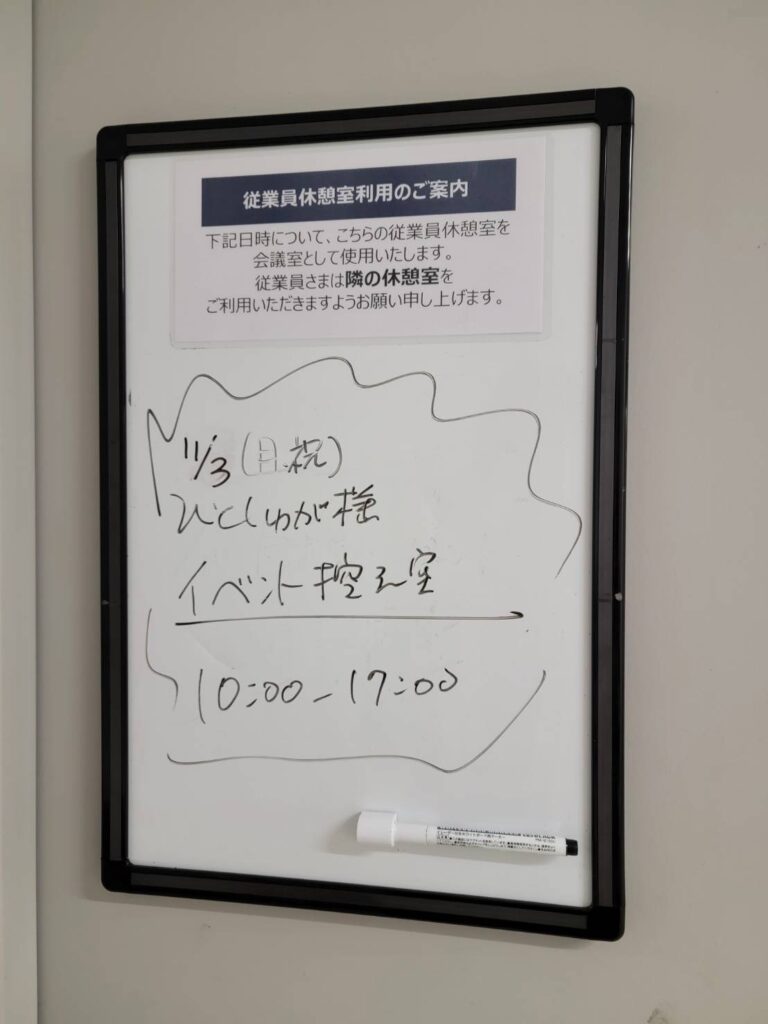 従業員休憩室利用のご案内
下記日時について、こちらの従業員休憩室を
会議室として使用いたします。
従業員さまは隣の休憩室を
ご利用いただきますようお願い申し上げます。
11/3(月.祝)
びくしゅが様
イベント控え室
10:00-17:00